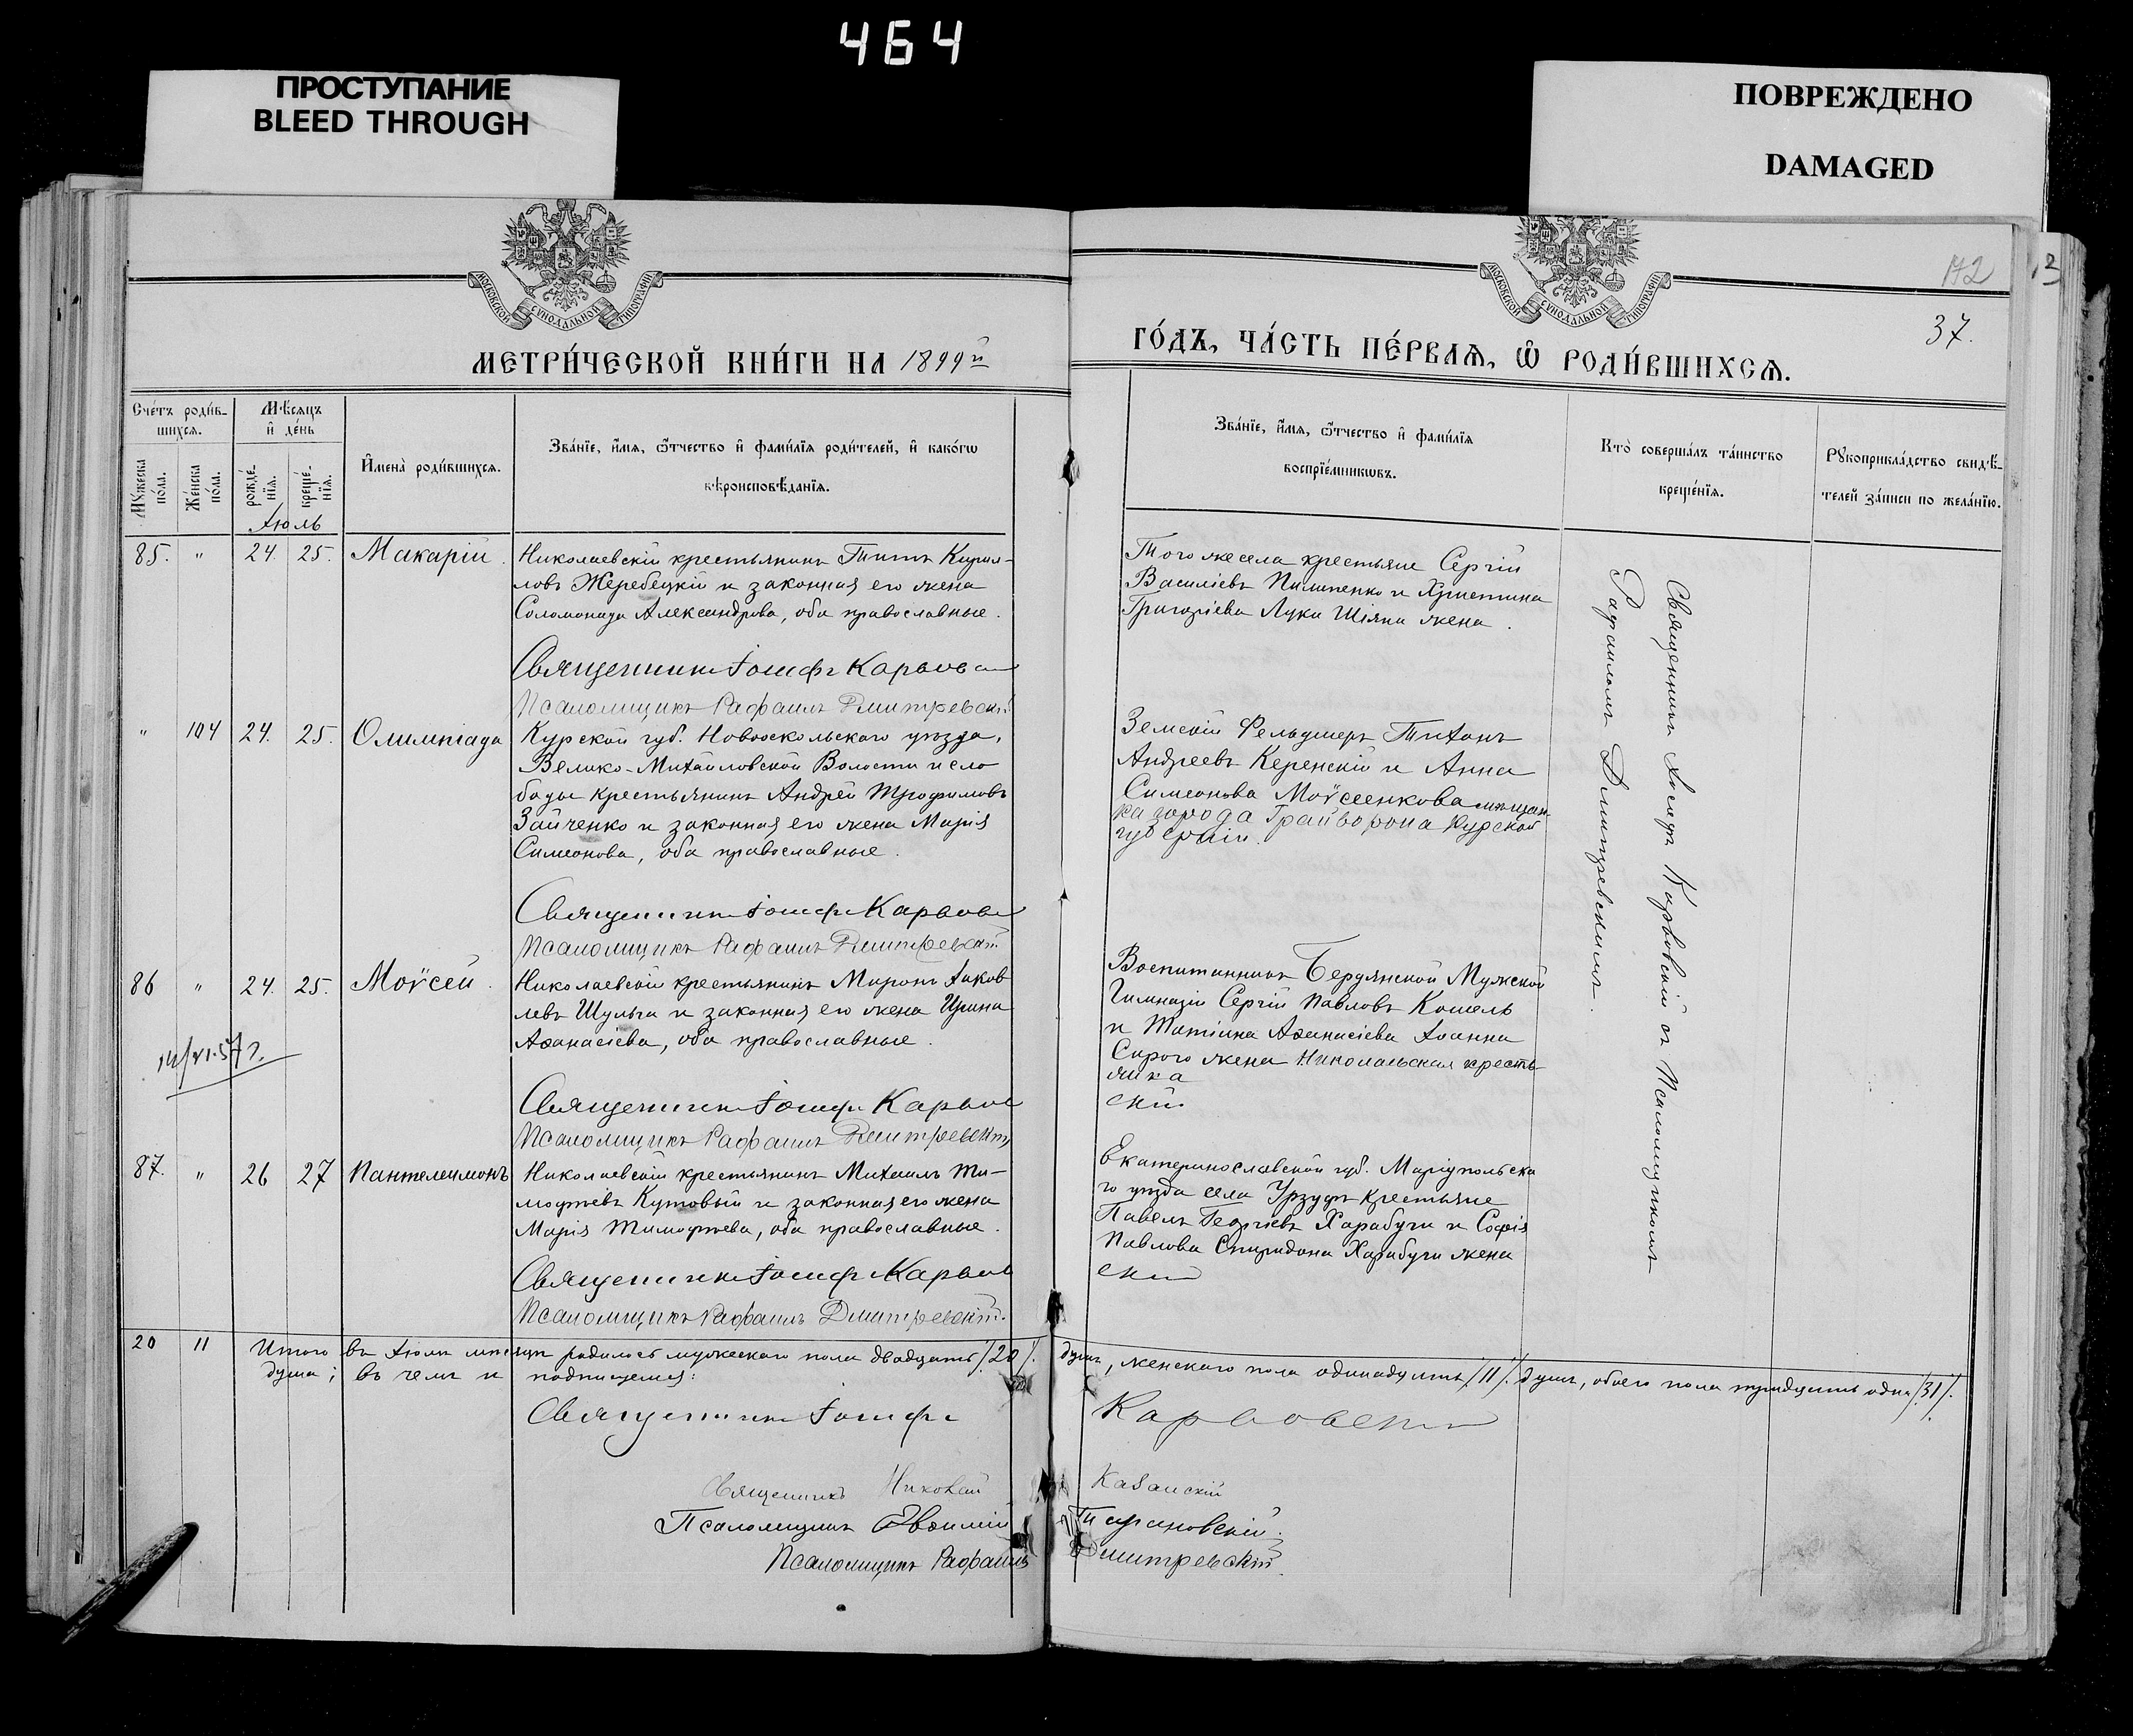 464
ПРОСТУПАНИЕ
BLEED THROUGH
ПОВРЕЖДЕНО
DAMAGED
МОСКОВСКОЙ СУНОДАЛЬНОЙ ТИПОГРАФІИ
МОСКОВСКОЙ СУНОДАЛЬНОЙ ТИПОГРАФІИ
172
37.
МЕТРИ́ЧЕСКОЙ КНИ́ГИ НА 1899й
ГО́ДЪ, ЧА́СТЬ ПЕ́РВАѦ, Ѽ РОДИ́ВШИХСѦ.
Сче́тъ роди́в-
шихсѧ.
Мѣ́сяцъ
и҆ де́нь
Мꙋ́жеска по́ла.
Же́нска по́ла.
рожде́-
нїѧ.
креще́-
нїѧ.
И҆мена̀ роди́вшихсѧ.
Зва́нїе, и҆́мѧ, ѻ҆́тчество и҆ фами́лїѧ роди́телей, и҆ како́гѡ
вѣроисповѣ́данїѧ.
Зва́нїе, и҆́мѧ, ѻ҆́тчество и҆ фами́лїѧ
воспрїе́мникѡвъ.
Кто̀ соверша́лъ та́инство
креще́нїѧ.
Рꙋкоприкла́дство свидѣ́-
телей за́писи по жела́нїю.
Іюль
85. " 24. 25. Макарій.
Николаевскій крестьянинъ Титъ Кирил-
ловъ Жеребецкій и законная его жена
Соломонида Александрова, оба православные.
Священникъ Іосифъ Карвов
Псаломщикъ Рафаилъ Дмитревскій
Того же села крестьяне Сергій
Василіевъ Пилипенко и Христина
Григоріева Луки Шіяна жена.
" 104 24. 25. Олимпіада
Курской губ. Новооскольскаго уѣзда,
Велико-Михайловской Волости и сло
боды крестьянинъ Андрей Трофимовъ
Зайченко и законная его жена Марія
Симеонова, оба православные.
Священникъ Іосифъ Карвов
Псаломщикъ Рафаилъ Дмитревскій
Земскій Фельдшеръ Тихонъ
Андреевъ Керенскій и Анна
Симеонова Моѵсеенкова мѣщан-
ка города Грайворона Курской
губерніи.
86 " 24. 25. Моѵсей.
Николаевскій крестьянинъ Миронъ Іаков
левъ Шульга и законная его жена Ирина
Аѳанасіева, оба православные.
Священникъ Іосифъ Карвов
Псаломщикъ Рафаилъ Дмитревскій
Воспитанникъ Бердянской Мужской
Гимназіи Сергій Павловъ Кошель
и Татіана Аѳанасіева Іоанна
Сирого жена Николаьская кресть-
янка
скій
87. " 26 27 Пантелеимонъ
Николаевскій крестьянинъ Михаилъ Ти-
моѳеевъ Кутовый и законная его жена
Марія Тимоѳеева, оба православные.
Священникъ Іосифъ Карвов
Псаломщикъ Рафаилъ Дмитревскій.
Екатеринославской губ. Маріупольска
го уѣзда села Урзуфъ крестьяне
Павелъ Георгіевъ Харабуги и Софія
Павлова Спиридона Харабуги жена
скій
Священникъ Іосифъ Карвовскій съ Псаломщикомъ
Рафаиломъ Дмитревскимъ.
20 11 Итого въ Іюлѣ мѣсяцѣ родилось мужескаго пола двадцать /20/. душъ, женскаго пола одинадцать /11/. душъ, обоего пола тридцать одна /31/.
душа; въ чемъ и подпишемся:
Священникъ Іосифъ Карвовскій
Священникъ Николай Казанскій
Псаломщикъ Евѳимій Тарановскій.
Псаломщикъ Рафаилъ Дмитревскій.